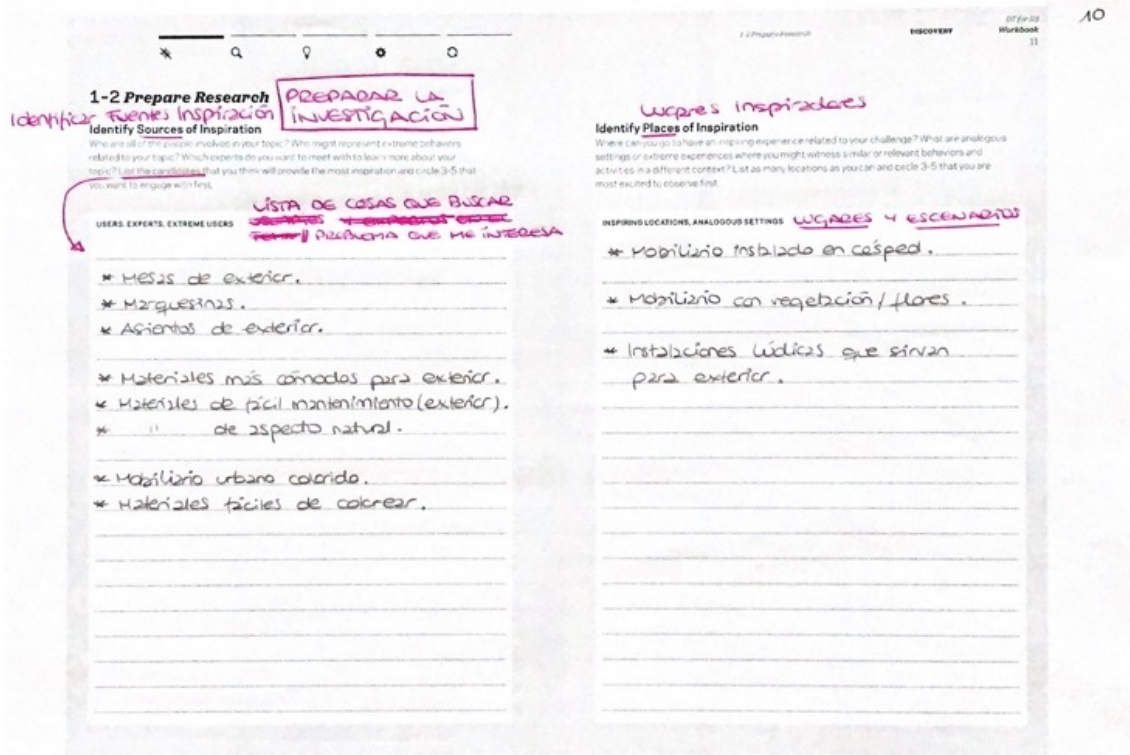 10
DT for Edu
Workbook
11
1-2 Prepare Research
DISCOVERY
1-2 Prepare Research
PREPARAR LA
INVESTIGACIÓN
Identificar Fuentes Inspiración
Identify Sources of Inspiration
Who are all of the people involved in your topic? Who might represent extreme behaviors
related to your topic? Which experts do you want to meet with to learn more about your
topic? List the candidates that you think will provide the most inspiration and circle 3-5 that
you want to engage with first.
LISTA DE COSAS QUE BUSCAR
USERS, EXPERTS, EXTREME USERS
PROBLEMA QUE ME INTERESA
* Mesas de exterior.
* Marquesinas.
* Asientos de exterior.
* Materiales más cómodos para exterior.
* Materiales de fácil mantenimiento (exterior).
* " de aspecto natural.
* Mobiliario urbano colorido.
* Materiales fáciles de colorear.
Lugares Inspiradores
Identify Places of Inspiration
Where can you go to have an inspiring experience related to your challenge? What are analogous
settings or extreme experiences where you might witness similar or relevant behaviors and
activities in a different context? List as many locations as you can and circle 3-5 that you are
most excited to observe first.
INSPIRING LOCATIONS, ANALOGOUS SETTINGS LUGARES Y ESCENARIOS
* Mobiliario instalado en césped.
* Mobiliario con vegetación / flores.
* Instalaciones lúdicas que sirvan
para exterior.